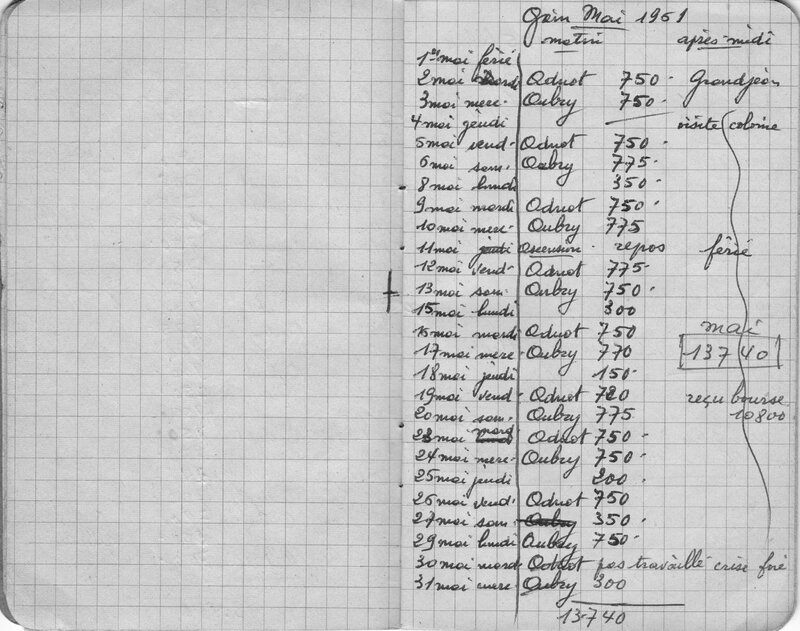 Gain Mai 1951
matin après-midi
1er mai férié
2 mai mard Oduot 750 - Grandjean
3 mai merc. Aubry 750 -
4 mai jeudi visite colonie
5 mai vend. Oduot 750 -
6 mai sam. Aubry 775 -
8 mai lundi 350 -
9 mai mardi Oduot 750 -
10 mai merc. Aubry 775
11 mai jeudi Ascension - repos férié
12 mai vend. Oduot 775 -
13 mai sam. Aubry 750 -
15 mai lundi 300
16 mai mardi Oduot 750
mai
17 mai merc. Aubry 770 13740
18 mai jeudi 150 -
19 mai vend. Oduot 720 reçu bourse
20 mai sam. Aubry 775 10800
23 mai mard Oduot 750 -
24 mai merc. Aubry 750 -
25 mai jeudi 200 -
26 mai vend. Oduot 750
27 mai sam. Aubry 350 -
29 mai lundi Aubry 750 -
30 mai mard. Oduot pas travaillé crise foie
31 mai merc. Aubry 300
13740